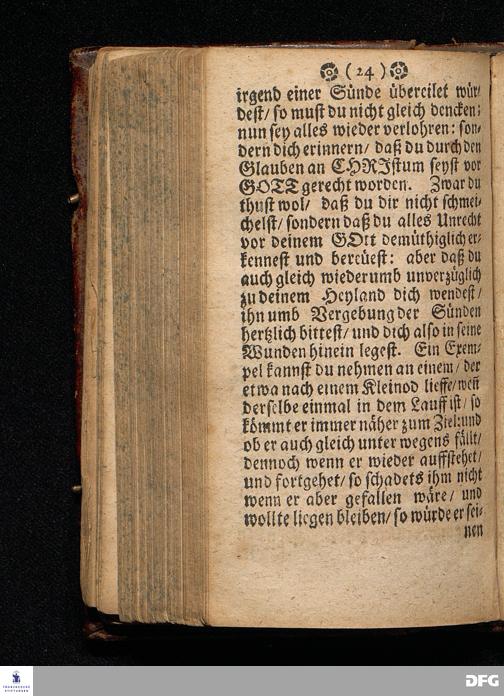 ( 24 )
irgend einer Sünde übereilet wür-
dest/ so must du nicht gleich dencken;
nun sey alles wieder verlohren: son-
dern dich erinnern/ daß du durch den
Glauben an CHRIstum seyst vor
GOTT gerecht worden. Zwar du
thust wol/ daß du dir nicht schmei-
chelst/ sondern daß du alles Unrecht
vor deinem GOtt demüthiglich er-
kennest und bereüest: aber daß du
auch gleich wiederumb unverzüglich
zu deinem Heyland dich wendest/
ihn umb Vergebung der Sünden
hertzlich bittest/ und dich also in seine
Wunden hinein legest. Ein Exem-
pel kannst du nehmen an einem/ der
etwa nach einem Kleinod lieffe/ weñ
derselbe einmal in dem Lauff ist/ so
kömmt er immer näher zum Ziel: und
ob er auch gleich unter wegens fällt/
dennoch wenn er wieder auffstehet/
und fortgehet/ so schadets ihm nicht
wenn er aber gefallen wäre/ und
wollte liegen bleiben/ so würde er sei-
nen
FRANCKESCHE
STIFTUNGEN
DFG